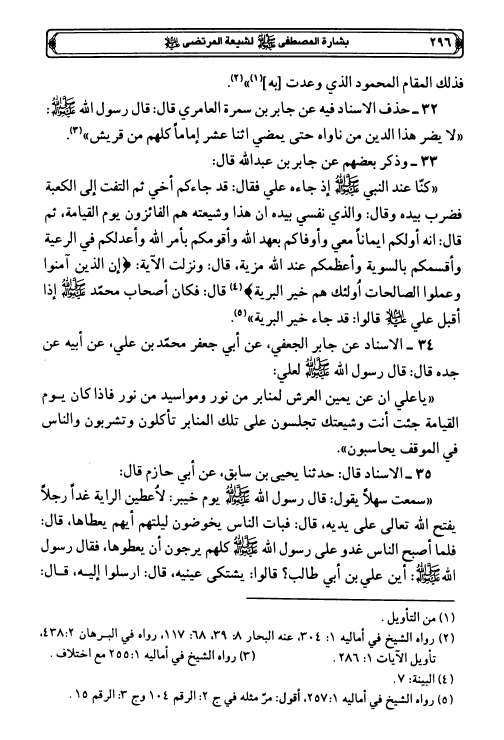 ٢٩٦ بشارة المصطفى ﷺ لشيعة المرتضى ﷷ
فذلك المقام المحمود الذي وعدت [به]»(١)(٢).
٣٢ ـ حذف الاسناد فيه عن جابر بن سمرة العامري قال: قال رسول الله ﷺ:
«لا يضر هذا الدين من ناواه حتى يمضي اثنا عشر إماماً كلهم من قريش»(٣).
٣٣ ـ وذكر بعضهم عن جابر بن عبدالله قال:
«كنّا عند النبي ﷺ إذ جاءه علي فقال: قد جاءكم أخي ثم التفت إلى الكعبة
فضرب بيده وقال: والذي نفسي بيده ان هذا وشيعته هم الفائزون يوم القيامة، ثم
قال: انه أولكم ايماناً معي وأوفاكم بعهد الله وأقومكم بأمر الله وأعدلكم في الرعية
وأقسمكم بالسوية وأعظمكم عند الله مزية، قال: ونزلت الآية: ﴿إن الذين آمنوا
وعملوا الصالحات أُولئك هم خير البرية﴾(٤) قال: فكان أصحاب محمّد ﷺ إذا
أقبل علي ﷷ قالوا: قد جاء خير البرية»(٥).
٣٤ ـ الاسناد عن جابر الجعفي، عن أبي جعفر محمّد بن علي، عن أبيه عن
جده قال: قال رسول الله ﷺ لعلي:
«ياعلي ان عن يمين العرش لمنابر من نور ومواسيد من نور فاذا كان يوم
القيامة جئت أنت وشيعتك تجلسون على تلك المنابر تأكلون وتشربون والناس
في الموقف يحاسبون».
٣٥ ـ الاسناد قال: حدثنا يحيى بن سابق، عن أبي حازم قال:
«سمعت سهلاً يقول: قال رسول الله ﷺ يوم خيبر: لأعطين الراية غداً رجلاً
يفتح الله تعالى على يديه، قال: فبات الناس يخوضون ليلتهم أيهم يعطاها، قال:
فلما أصبح الناس غدو على رسول الله ﷺ كلهم يرجون أن يعطوها، فقال رسول
الله ﷺ: أين علي بن أبي طالب؟ قالوا: يشتكى عينيه، قال: ارسلوا إليه، قال:
(١) من التأويل .
(٢) رواه الشيخ في أماليه ١: ٣٠٤، عنه البحار ٨: ٣٩، ٦٨: ١١٧، رواه في البرهان ٢: ٤٣٨،
تأويل الآيات ١: ٢٨٦ . (٣) رواه الشيخ في أماليه ١: ٢٥٥ مع اختلاف .
(٤) البينة: ٧ .
(٥) رواه الشيخ في أماليه ١: ٢٥٧، أقول: مرّ مثله في ج ٢: الرقم ١٠٤ وج ٣: الرقم ١٥ .